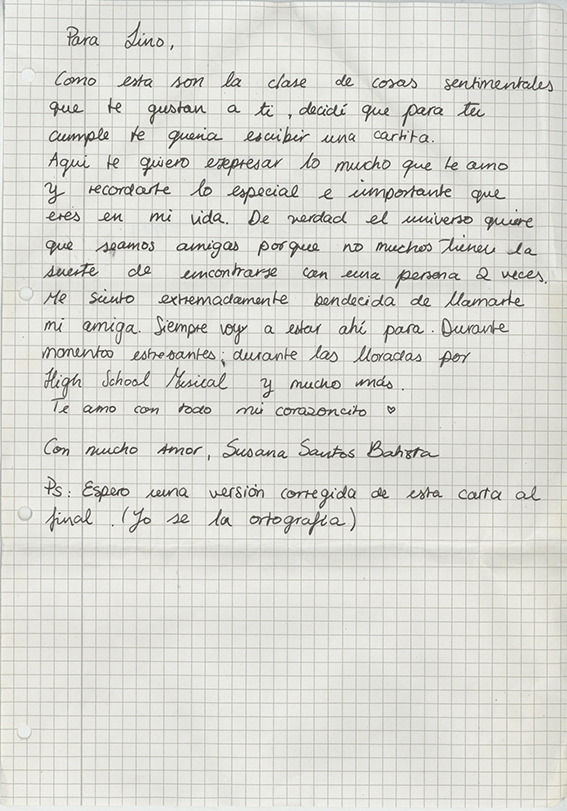 Para Lino,
Como esta son la clase de cosas sentimentales
que te gustan a ti, decidí que para tu
cumple te queria escribir una cartita.
Aqui te quiero expresar lo mucho que te amo
Y recordarte lo especial e importante que
eres en mi vida. De verdad el universo quiere
que seamos amigas porque no muchos tienen la
suerte de encontrarse con una persona 2 veces.
Me siento extremadamente bendecida de llamarte
mi amiga. Siempre voy a estar ahí para. Durante
momentos estresantes; durante las lloradas por
High School Musical y mucho más.
Te amo con todo mi corazoncito ♡
Con mucho Amor, Susana Santos Batista
Ps: Espero una versión corregida de esta carta al
final. (Yo se la ortografía)